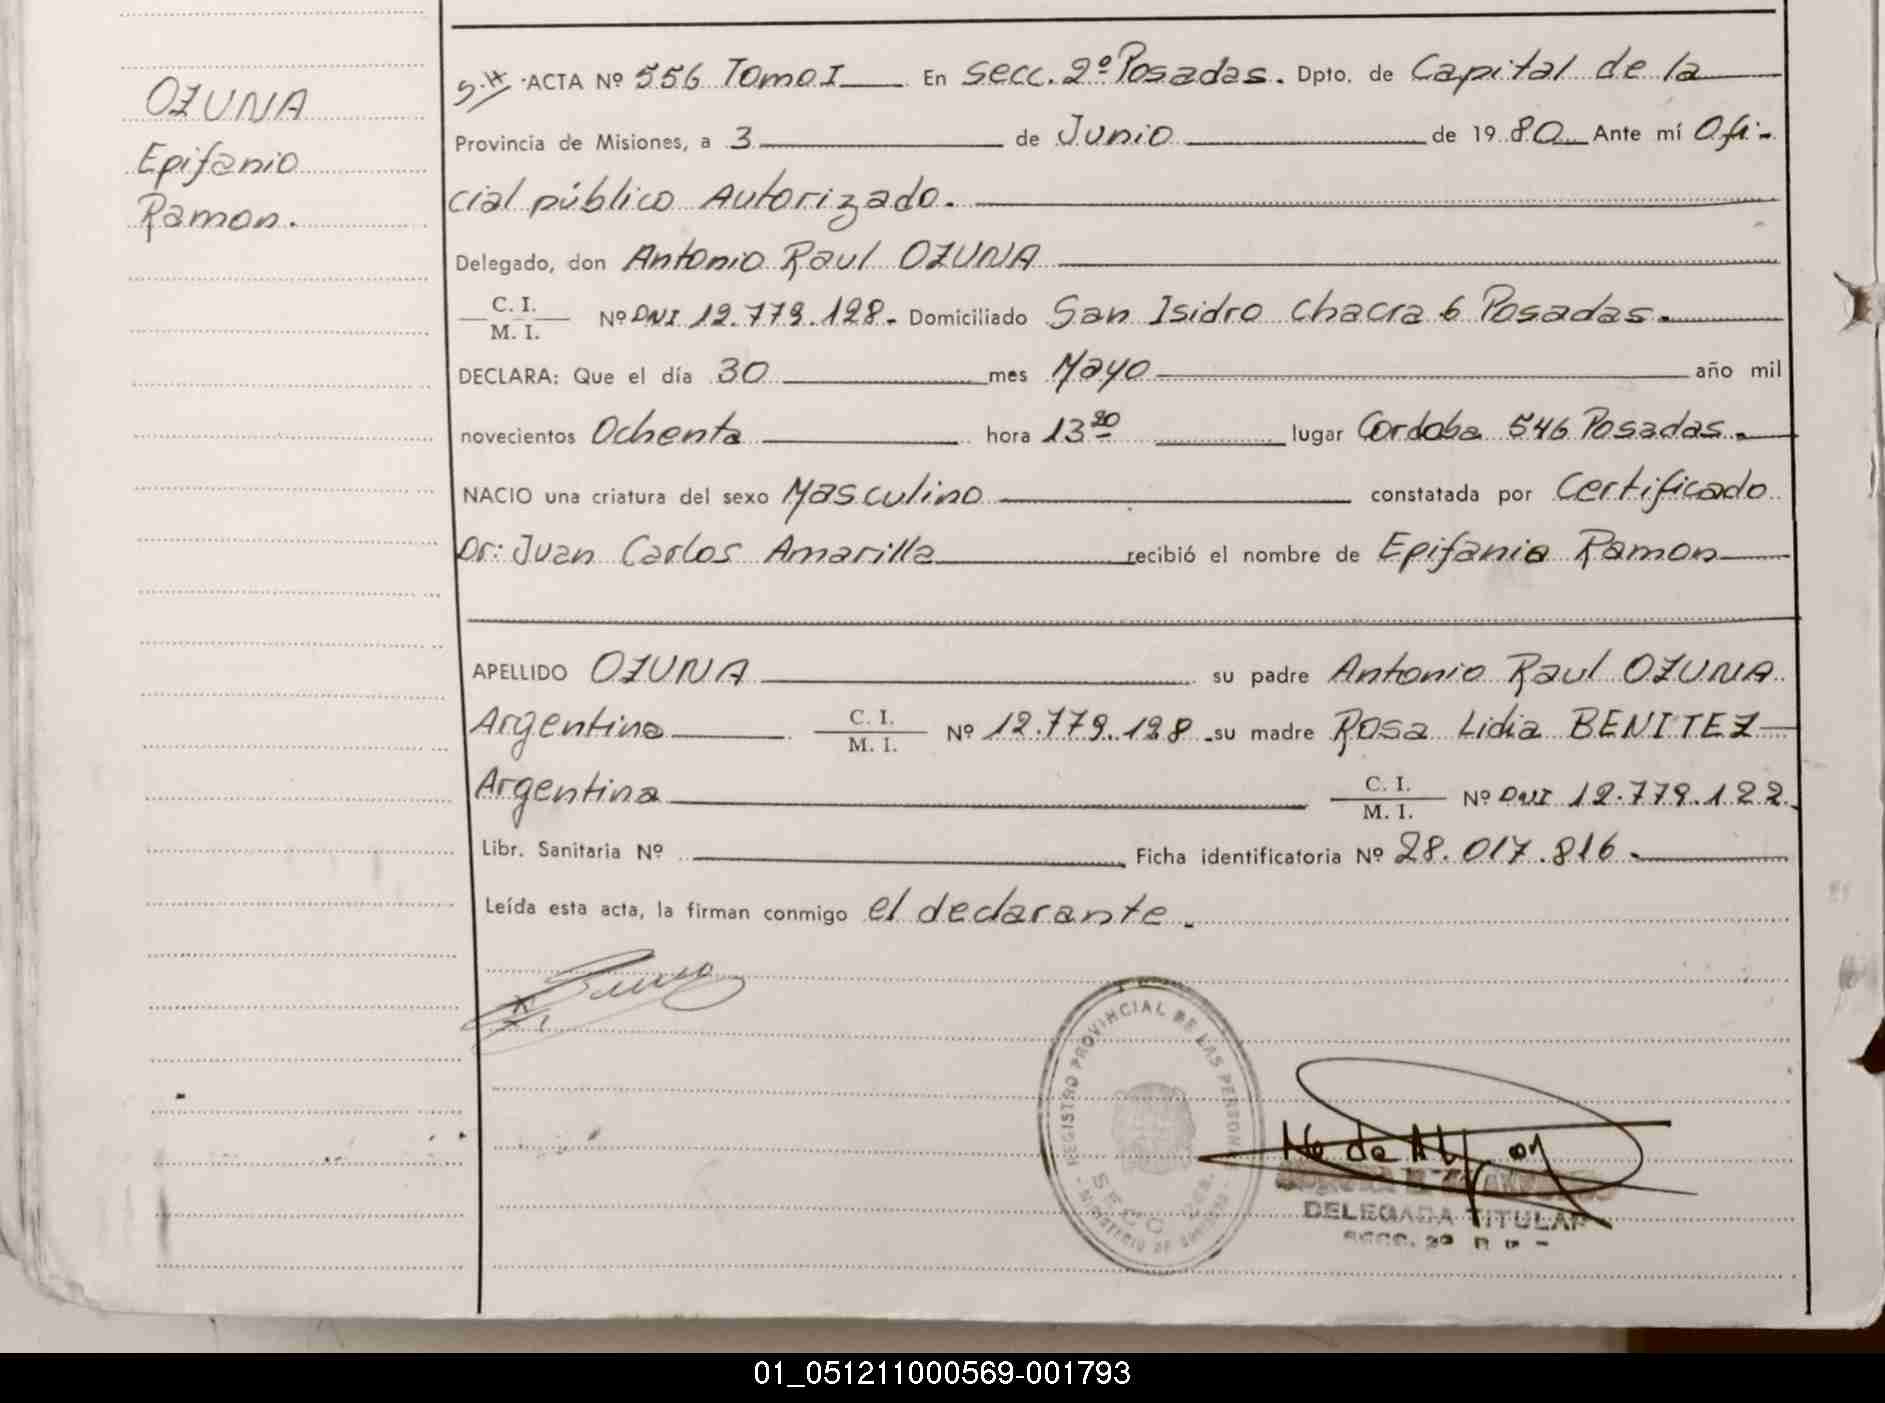 OZUNA
Epifanio
Ramon.
S.H. ACTA Nº 556 Tomo I En Secc. 2º Posadas. Dpto. de Capital de la
Provincia de Misiones, a 3 de Junio de 19 80 Ante mí Ofi-
cial público Autorizado.
Delegado, don Antonio Raul OZUNA
C. I.
M. I. Nº DNI 12.779.128. Domiciliado San Isidro Chacra 6 Posadas.
DECLARA: Que el día 30 mes Mayo año mil
novecientos Ochenta hora 13 20 lugar Cordoba 546 Posadas.
NACIO una criatura del sexo Masculino constatada por Certificado
Dr: Juan Carlos Amarilla recibió el nombre de Epifanio Ramon
APELLIDO OZUNA su padre Antonio Raul OZUNA
Argentino C. I. M. I. Nº 12.779.128 su madre Rosa Lidia BENITEZ
Argentina C. I. M. I. Nº DNI 12.779.122.
Libr. Sanitaria Nº Ficha identificatoria Nº 28.017.816.
Leída esta acta, la firman conmigo el declarante.
REGISTRO PROVINCIAL DE LAS PERSONAS
SECC
MINISTERIO DE GOBIERNO
DELEGADA TITULAR
SECC. 2º
01_051211000569-001793